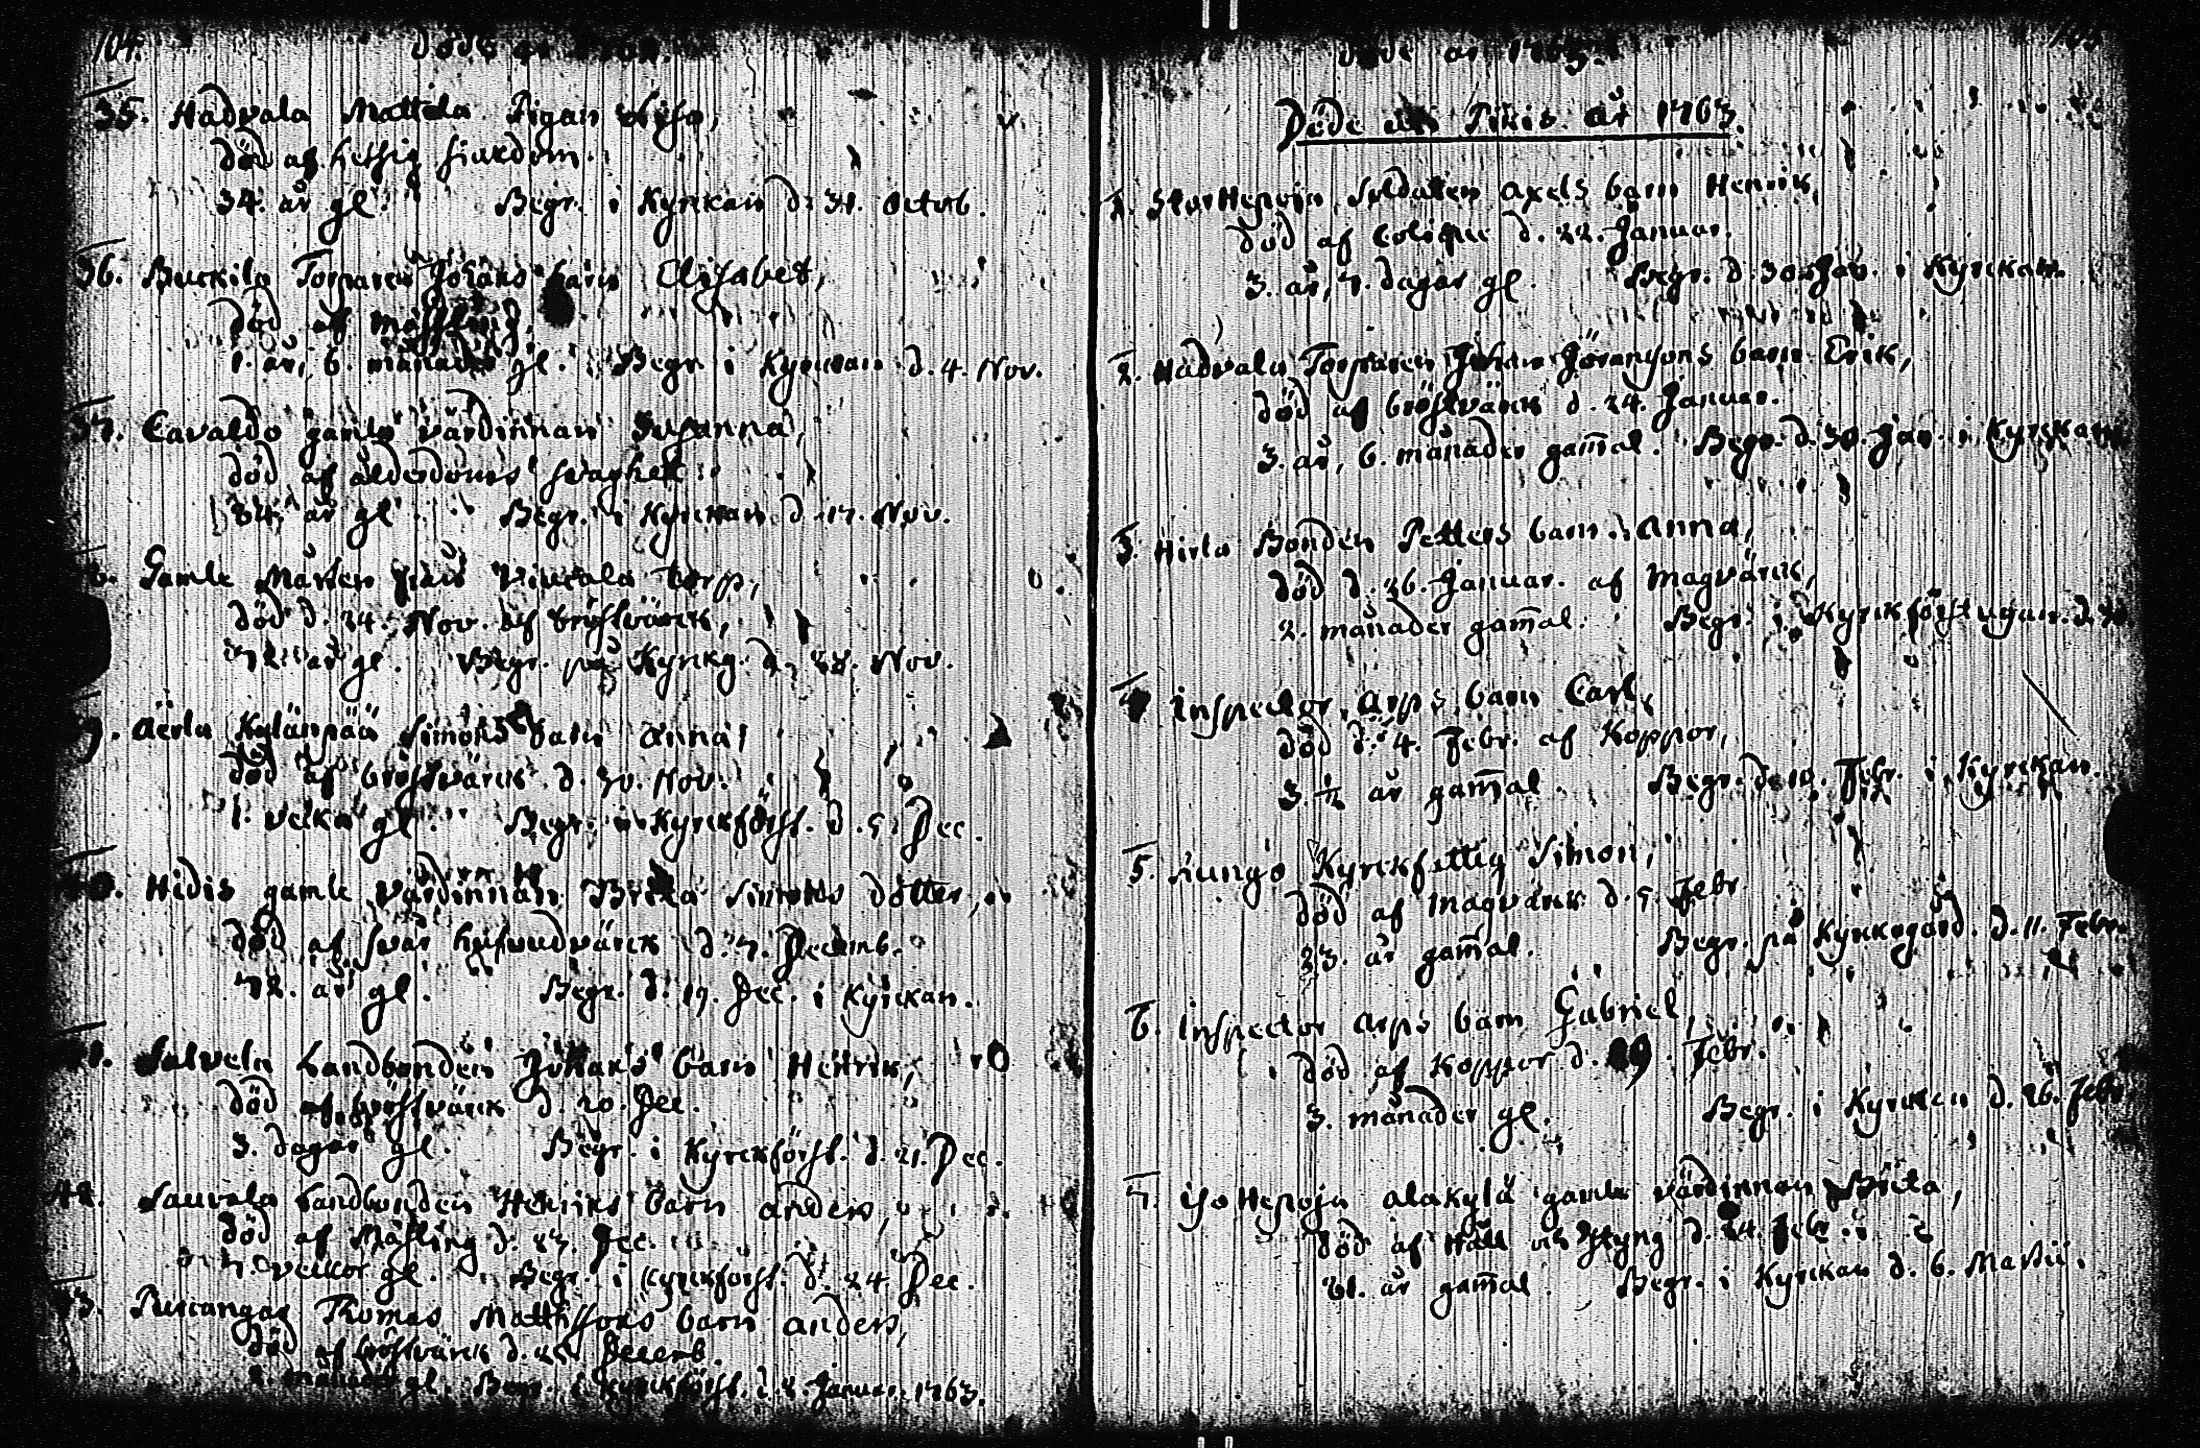 104. Döde år 1762.
35. Hadvala Mattila Pigan Lisa,
död af hetsig siukdom.
34. år gl. Begr. i Kyrckan d. 31. Octob.
36. Buckila Torparen Johans barn Elisabet,
död af mässling,
1. år, 6. månader gl. Begr. i Kyrckan d. 4. Nov.
37. Cavaldo gamla värdinnan Susanna,
död af ålderdoms svaghet.
84. år gl. Begr. i Kyrckan d. 17. Nov.
Gamle Mårten från torp,
död d. 24. Nov. af bröstvärck,
72. år gl. Begr. på Kyrkg. d. 28. Nov.
9. Aerla Kylänpää Simons barn Anna,
död af bröstvärck d. 30. Nov.
1. vecka gl. Begr. i Kyrckförst. d. 5. Dec.
40. Hidis gamle värdinnan Brita Simons dotter,
död af svår hufwudvärck d. 7. Decemb.
72. år gl. Begr. d. 19. Dec. i Kyrckan.
41. Salvela Landbonden Johans barn Henrik,
död af bröstvärck d. 20. Dec.
3. dagar gl. Begr. i Kyrckförst. d. 21. Dec.
42. Sauvala Landbonden Henriks barn Anders,
död af Mäsling d. Dec.
7. veckor gl. Begr. i Kyrckförst. d. 24 Dec.
43. Thomas Mattssons barn Anders,
död af bröstvärck d. Decemb.
2. månader gl. Begr. i Kyrckförst. d. 2. Januar. 1763.
Döde år 1763.
Döde uti Pikis år 1763.
1. StorHepoja Soldaten Axels barn Henrik,
död af Colique d. 22. Januar.
3. år, 7. dagar gl. Begr. d. 30. Jan. i Kyrckan.
2. Hadvala Torparen Johan Göranssons barn Erik,
död af bröstvärck d. 24. Januar.
3. år, 6. månader gam̄al. Begr. d. 30. Jan. i Kyrckan.
3. Hirla Bonden Petters barn Anna,
död d. 26. Januar. af Magvärck,
2. månader gam̄al. Begr. i Kyrckförstugan. d. 30
4 Inspector Arps barn Carl,
död d. 4. Febr. af Koppor,
3. ½ år gam̄al. Begr. d. 10. Febr. i Kyrckan.
5. Lungo Kyrckfattig Simon,
död af Magvärck d. 5. Febr
23. år gam̄al. Begr. på Kyrckogård. d. 11. Febr.
6. Inspector Arps barn Gabriel,
död af Koppor d. 19. Febr.
3. månader gl. Begr. i Kyrckan d. 26. Febr
7. Iso Hepoja Alakylä gamla värdinnan Brita,
död af Håll och Styng d. 24. Febr.
61. år gam̄al. Begr. i Kyrckan d. 6. Martii.